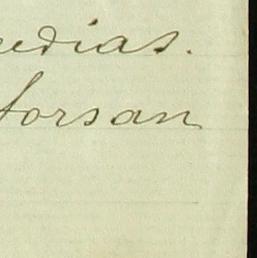 edias.
forsan